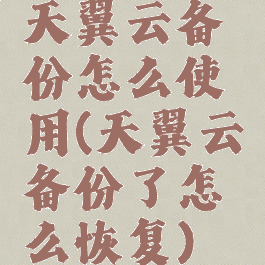 天翼云备
份怎么使
用(天翼云
备份了怎
么恢复)